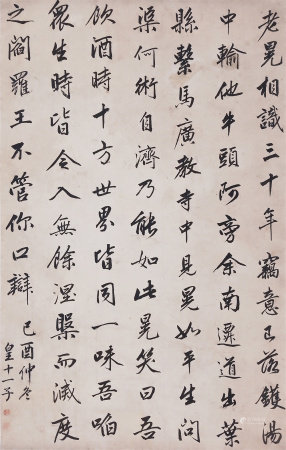 老晃相識三十年竊意已落鑊湯
中輪他牛頭阿旁余南遷道出葉
縣繫馬廣教寺中見晃如平生問
渠何術自濟乃能如此晃笑曰吾
飲酒時十方世界皆同一味吾啗
衆生時皆令入無餘涅槃而滅度
之閻羅王不管你口辯
己酉仲冬
皇十一子